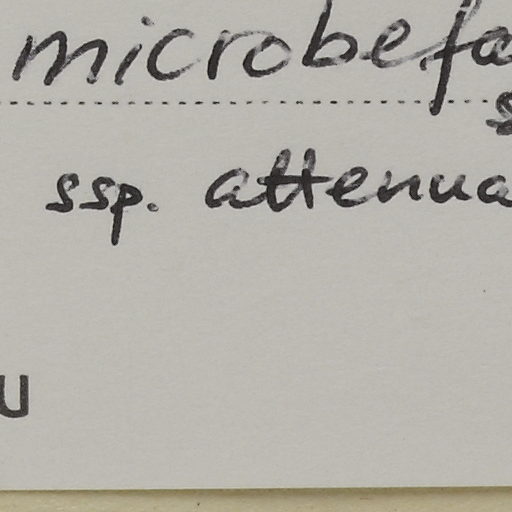 microbefa
s
ssp. attenua
u